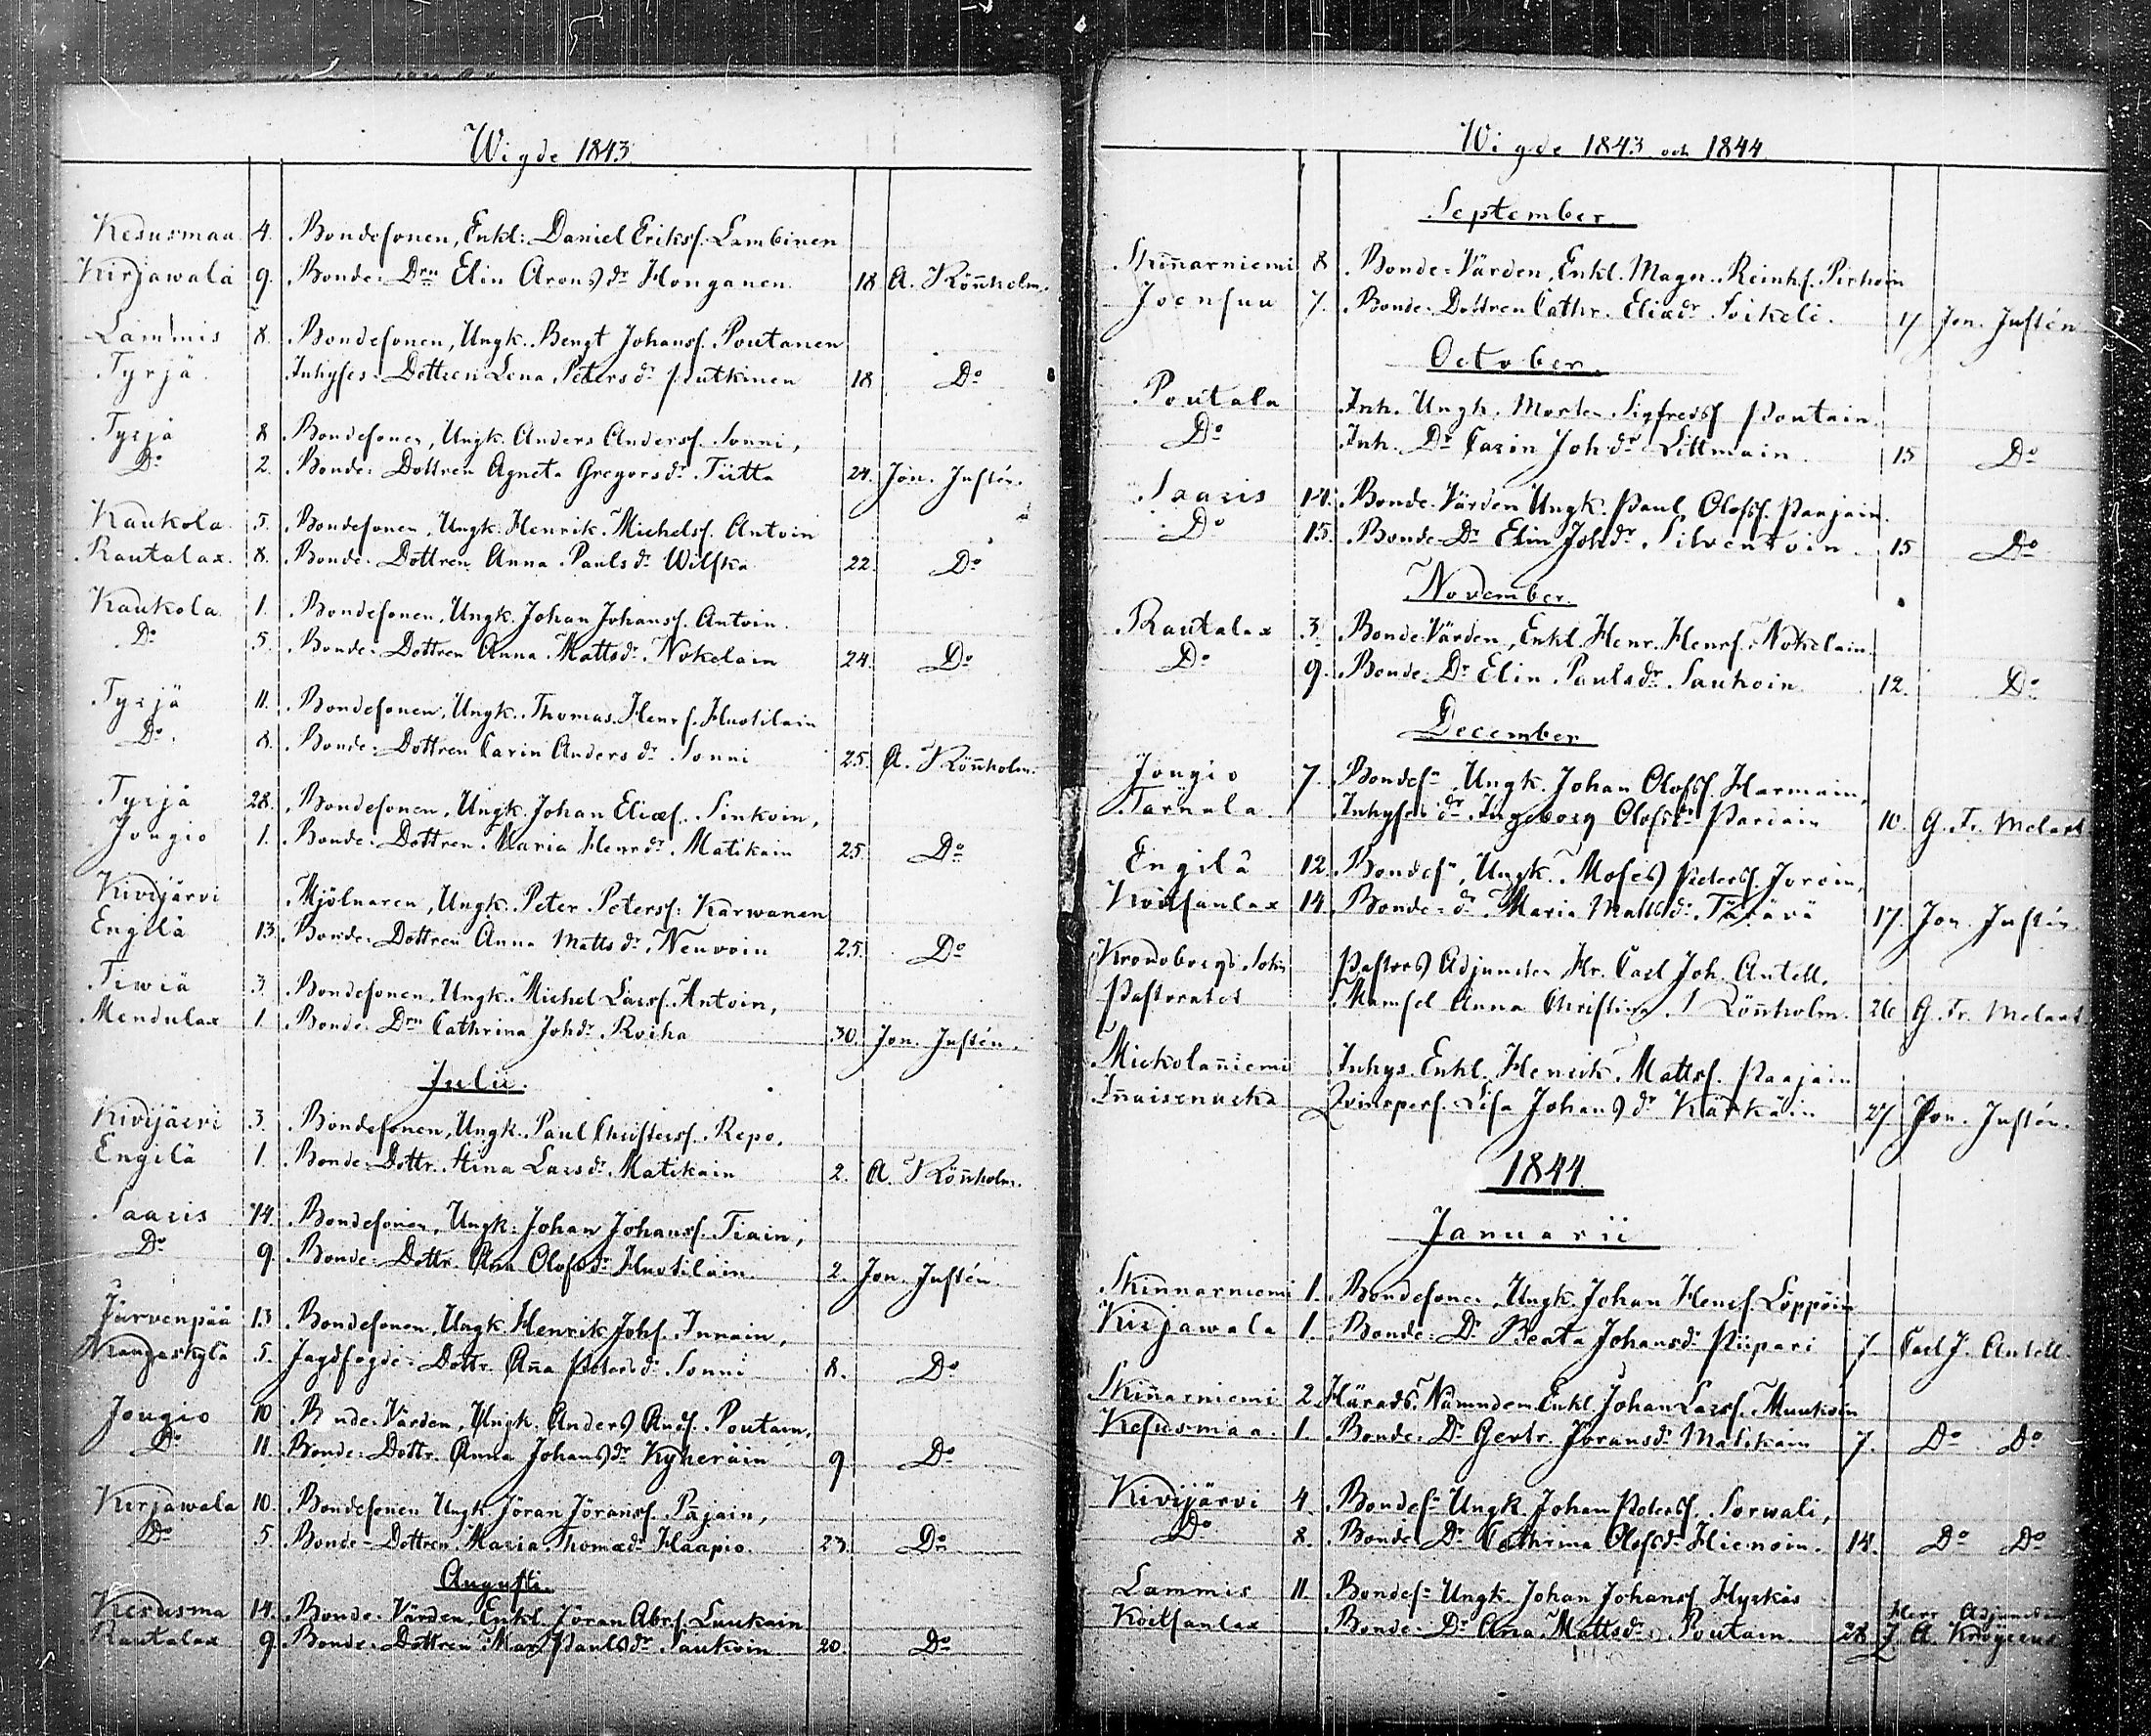 Wigde 1843.
Kesusmaa 4. Bondesonen, Enkl: Daniel Eriksf. Lambinen
Kirjawala 9. Bonde-Drn Elin Arons dr Honganen 18 A. Rönnholm.
Lammis 8. Bondesonen, Ungk. Bengt Johansf. Poutanen
Tyrjä Inhyses-Dottren Lena Peters dr Putkinen 18 Do
Tyrjä 8 Bondesonen, Ungk. Anders Andersf. Sonni,
Do 2. Bonde-Dottren Agneta Gregorsdr Tiitta 24. Jon. Justén.
Kaukola 5. Bondesonen, Ungk. Henrik Michelsf. Antoin
Rautalax. 8. Bonde-Dottren Anna Pauls dr Wilska 22. Do
Kaukola 1. Bondesonen, Ungk. Johan Johansf. Antoin.
Do 5. Bonde-Dottren Anna Mattsdr Nokelain 24. Do
Tyrjä 11. Bondesonen, Ungk. Thomas Henrf. Huotilain
Do. 8. Bonde-Dottren Carin Anders dr Sonni 25. A. Rönnholm.
Tyrjä 28. Bondesonen, Ungk. Johan Eliæf. Sinkoin,
Jougio 1. Bonde-Dottren Maria Henrdr Matikain 25. Do
Kivijärvi Mjölnaren, Ungk. Peter Petersf. Karwanen
Engilä 13. Bonde-Dottren Anna Matts dr Neuvoin 25. Do
Tiwiä 3. Bondesonen, Ungk. Michel Larsf. Antoin,
Mendulax 1. Bonde-Drn Cathrina Johdr Roiha 30. Jon. Justén.
Julii.
Kivijärvi 3. Bondesonen, Ungk. Paul Christersf. Repo.
Engilä 1. Bonde-Dottr. Stina Larsdr Matikain 2. A. Rönnholm.
Saaris 14. Bondesonen, Ungk. Johan Johansf. Tiain,
Do 9. Bonde-Dottr. Ana Olofsdr Huotilain 2. Jon. Justén.
Järvenpää 13. Bondesonen, Ungk. Henrik Johf. Innain,
Mangaskylä 5. Jagdfogde-Dottr. Aña Petersdr Sonni 8. Do
Jougio 10 Bonde-Värden, Ungk. Anders Andf. Poutain,
Do 11. Bonde-Dottr. Anna Johansdr Kyheräin 9 Do
Kirjawala 10. Bondesonen Ungk. Jöran Jöransf. Pajain,
Do 5. Bonde-Dottren Maria Thomædr Haapio. 23. Do
Augusti.
Kesusma 14. Bonde-Värden, Enkl. Jöran Abrf. Luukain
Rautalax 9. Bonde-Dottren Mar. Paulsdr Saukoin 20. Do
Wigde 1843 och 1844
September
Skiñarniemi 8. Bonde-Värden, Enkl. Magn. Reinhf. Pirhoin
Joensuu 7. Bonde-Dottren Cathr. Eliædr Soikeli. 17 Jon. Justén
October.
Poutala Inh. Ungk. Morten Sigfredsf Poutain.
Do Inh. Dr Carin Joh dr Littmain 15 Do
Saaris 14. Bonde-Värden Ungk. Paul Olofsf. Paajain.
Do 15. Bonde-Dr Elin Johdr Silventoin 15 Do
November.
Rautalax 3. Bonde-Värden, Enkl. Henr. Henrf. Nokelain
Do 9. Bonde-Dr Elin Paulsdr Saukoin 12. Do
December
Jougio 7. Bondesn Ungk. Johan Olofsf. Harmain,
Tarnala Inhyses dr Ingeborg Olofsdr Pariain 10. G. Fr. Melart
Engilä 12 Bondesn, Ungk. Moses Petersf. Joroin,
Koitsanlax 14. Bonde-dr Maria Mattsdr Tärävä 17. Jon. Justén.
Kronoborgs Sokn Pastors Adjuncten Hr. Carl Joh. Antell,
Pastoratet Mamsel Anna Christina Rönnholm. 26 G. Fr. Melart
Mickolañiemi Inhys. Enkl. Henrik Mattsf. Paajain
Iñaisenucka Qvinspers. Lisa Johans dr Kärkäin 27. Jon. Justén.
1844.
Januarii
Skinnarniemi 1. Bondesonen, Ungk. Johan Henrf. Loppöin
Kirjawala 1. Bonde-Dr Beata Johansdr Piipari 7. Carl J. Antell.
Skiñarniemi 2. Härads Nämndem. Enkl. Johan Larsf. Muukoin
Kesusmaa. 1. Bonde-Dr Gertr. Jöransdr Matikain 7. Do Do
Kivijärvi 4. Bondesn Ungk. Johan Petersf. Sorwali,
Do 8. Bonde-Dr Cathrina Olofsdr Hienoin. 14. Do Do
Lammis 11. Bondesn Ungk. Johan Johansf Hyrkäs
Koitsanlax Bonde-Dr Ana Mattsdr Poutain. 28 Herr Adjuncten
J. A. Krogerus